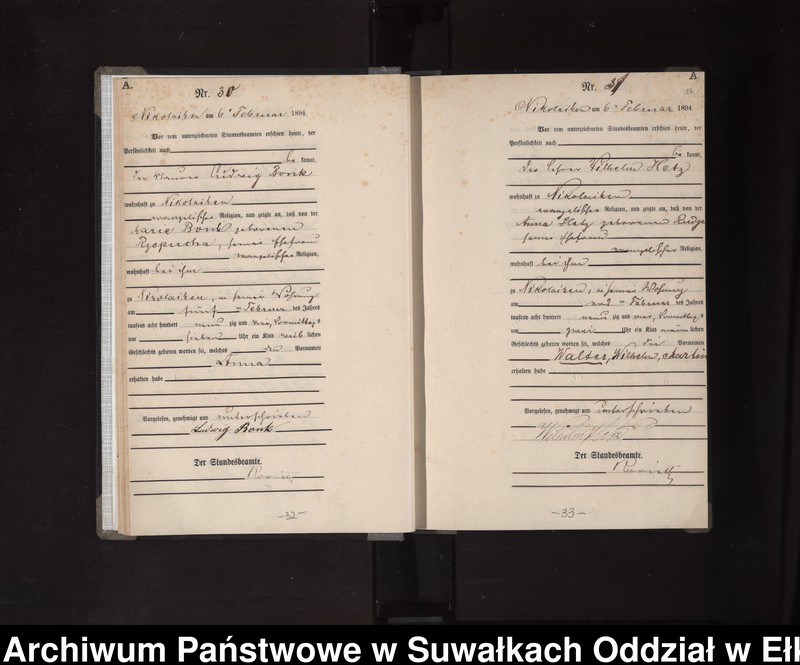 A.
Nr. 30
Nikolaiken am 6ᵗ Februar 1894.
Vor dem unterzeichneten Standesbeamten erschien heute, der
Persönlichkeit nach
be kannt,
der Maurer Ludwig Bonk
wohnhaft zu Nikolaiken
evangelischer Religion, und zeigte an, daß von der
Marie Bonk geborenen
seiner Ehefrau
evangelischer Religion,
wohnhaft bei ihm
zu Nikolaiken, in seiner Wohnung
am fünften Februar des Jahres
tausend acht hundert neun zig und vier, Vormittags
um sieben Uhr ein Kind weib lichen
Geschlechts geboren worden sei, welches den Vornamen
Anna
erhalten habe
Vorgelesen, genehmigt und unterschrieben
Ludwig Bonk
Der Standesbeamte.
-32-
A
Nr. 31
Nikolaiken am 6ᵗ Februar 1894
Vor dem unterzeichneten Standesbeamten erschien heute, der
Persönlichkeit nach
be kannt,
der Wilhelm Hetz
wohnhaft zu Nikolaiken
evangelischer Religion, und zeigte an, daß von der
Anna Hetz geborenen
seiner Ehefrau
evangelischer Religion,
wohnhaft bei ihm
zu Nikolaiken, in seiner Wohnung
am Februar des Jahres
tausend acht hundert neun zig und vier, Vormittags
um zwei Uhr ein Kind männ lichen
Geschlechts geboren worden sei, welches die Vornamen
Walter, Wilhelm, Martin
erhalten habe
Vorgelesen, genehmigt und unterschrieben
Wilhelm Hetz
Der Standesbeamte.
-33-
Archiwum Państwowe w Suwałkach Oddział w Ełk